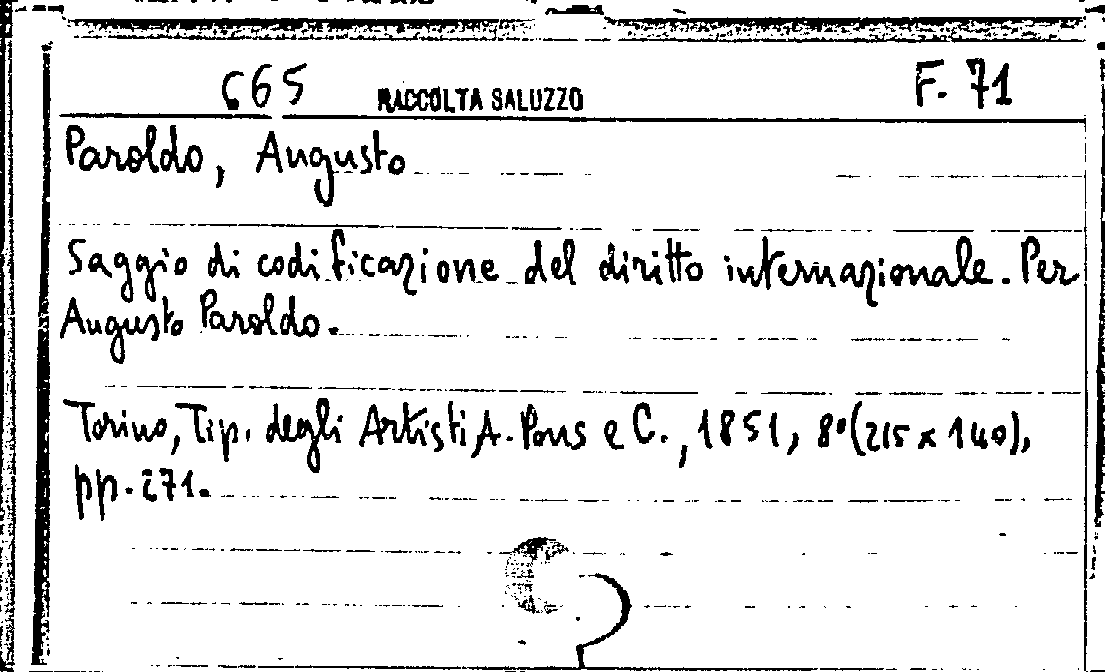 665 RACCOLTA SALUZZO F. 71
Paroldo, Augusto
Saggio di codificazione del diritto internazionale. Per
Augusto Paroldo.
Torino, Tip. degli Artisti, A. Pons e C., 1851, 8° (215 x 140),
pp. 271.